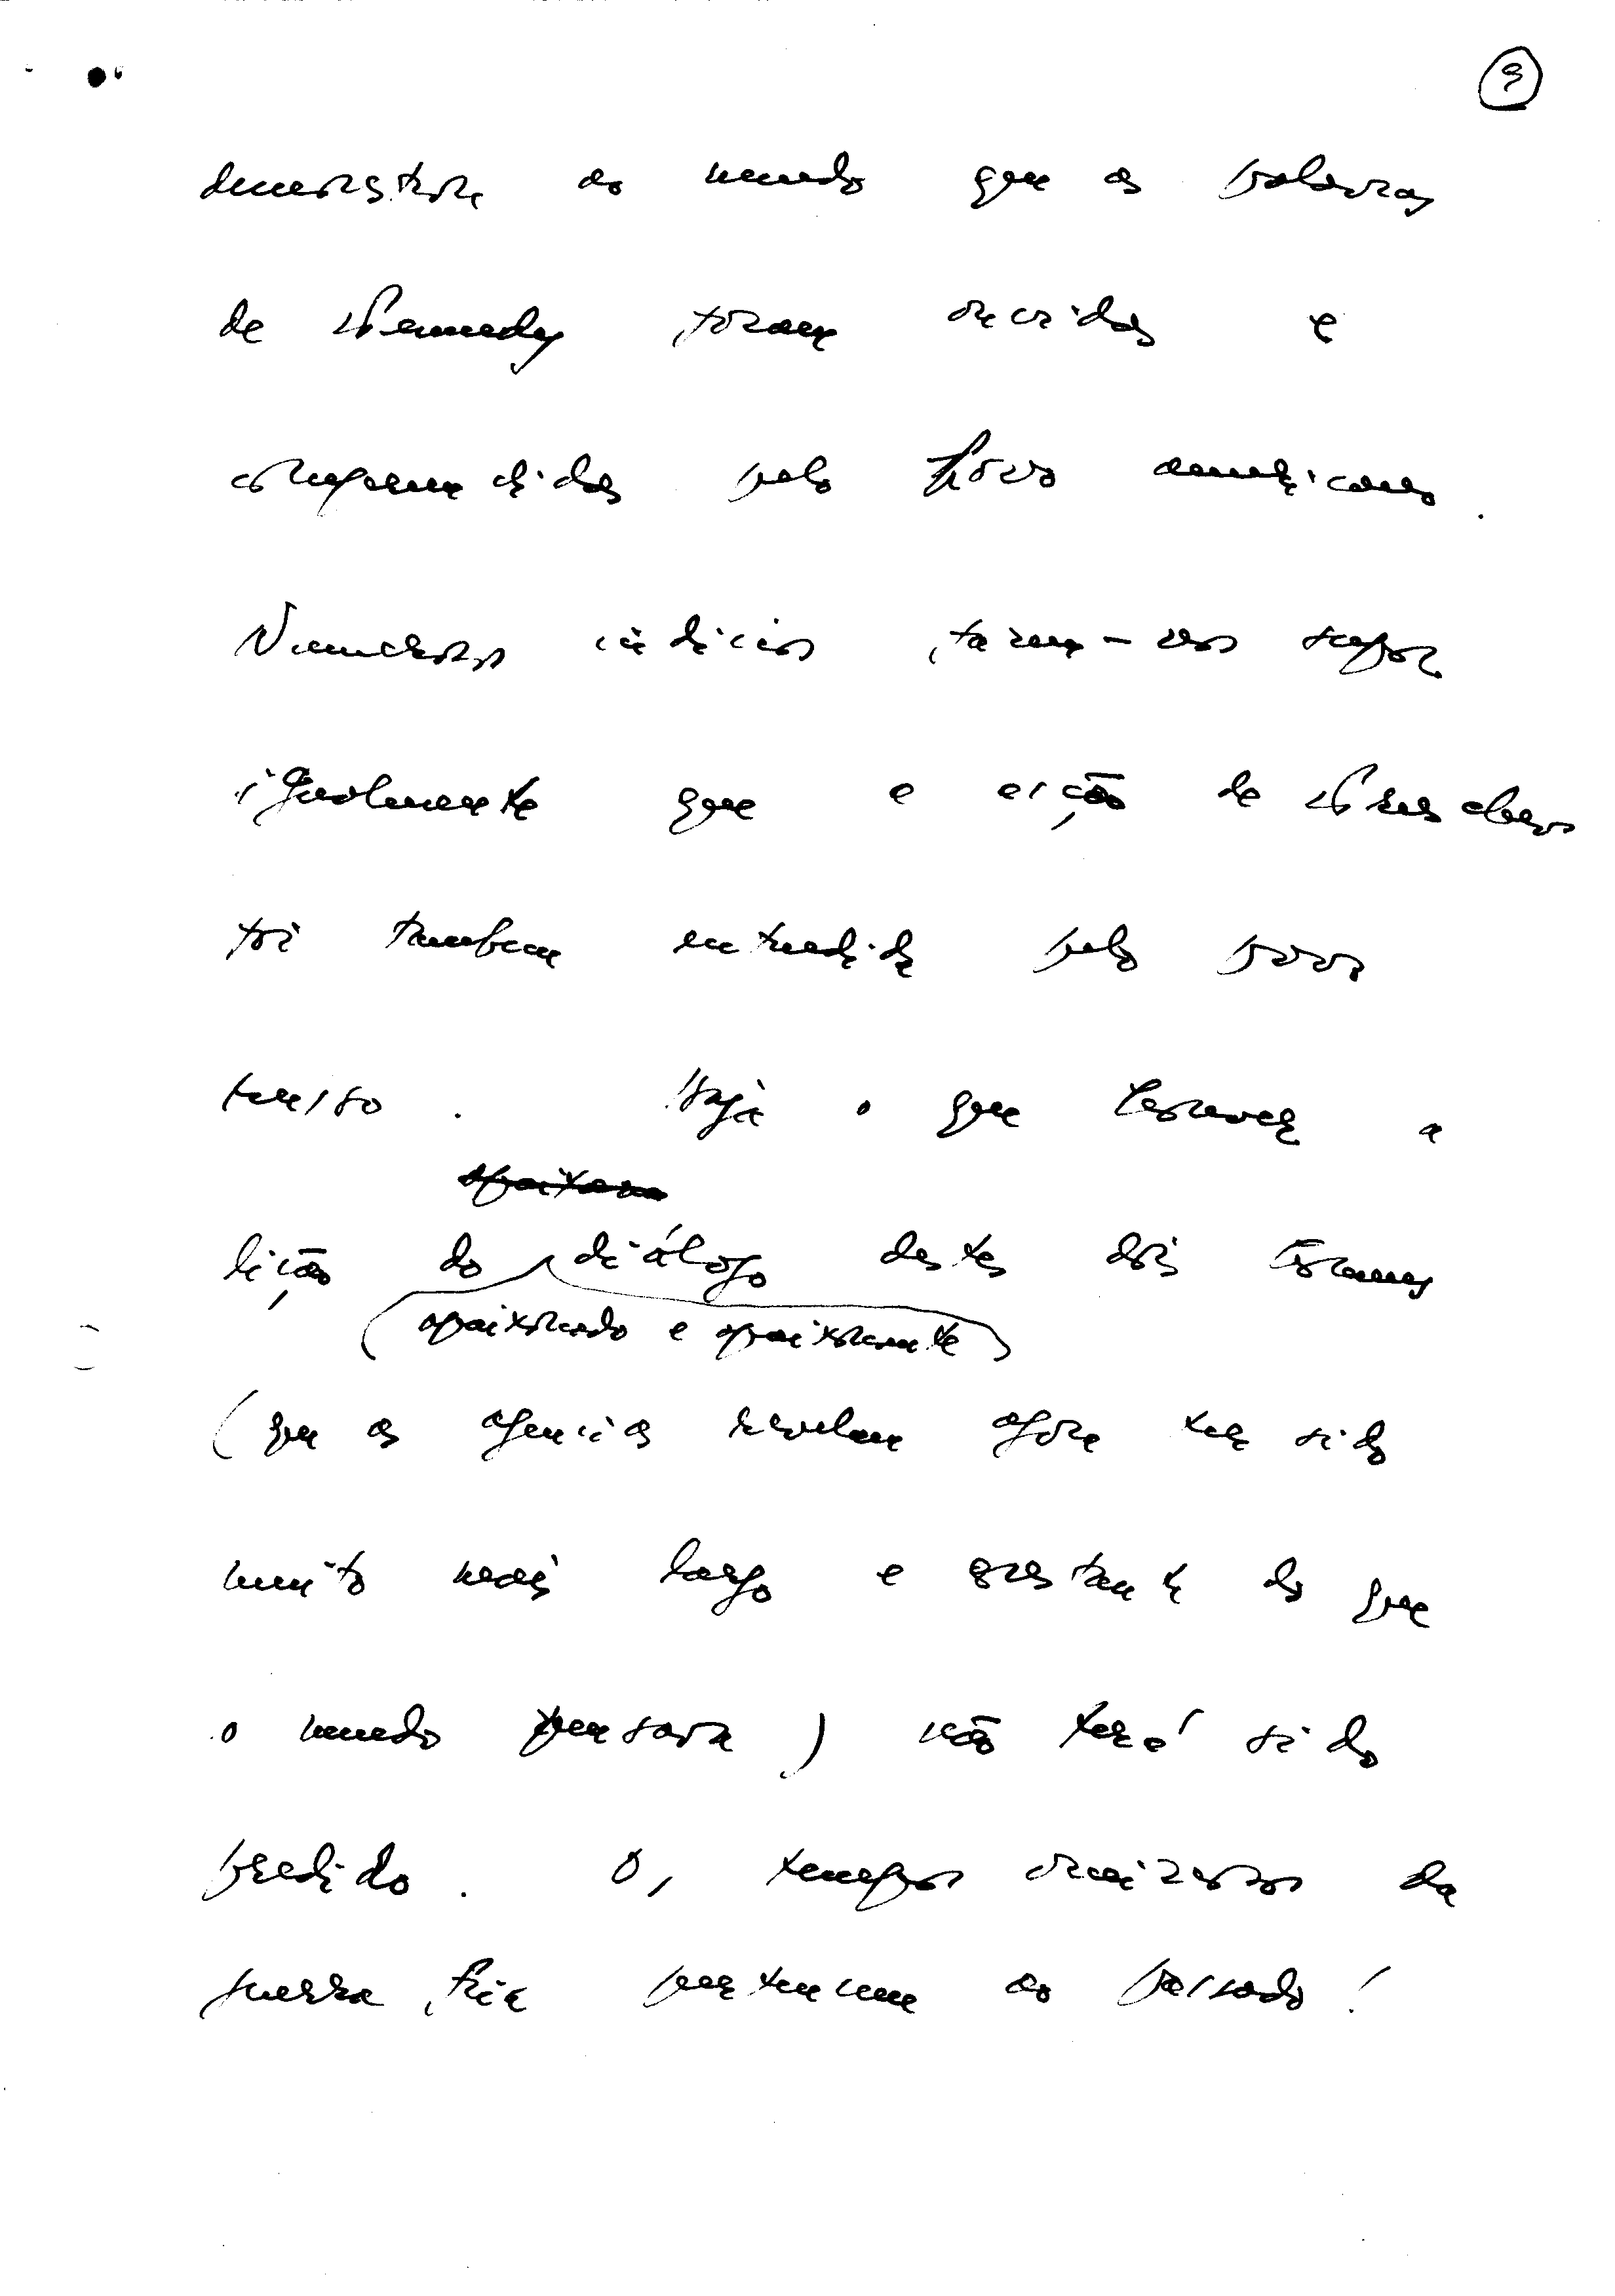 9
demonstrar ao mundo que as palavras
de Kennedy foram ouvidas e
compreendidas pelo povo americano.
Numerosos indícios fazem-nos supor
igualmente que a lição de Kruschev
foi tambem entendida pelo povo
russo. Seja o que for a
lição do diálogo destes dois homens
(apaixonado e apaixonante)
(que as agencias revelam agora ter sido
muito mais largo e constante do que
o mundo pensara) não terá sido
perdido. Os tempos ominosos da
guerra fria pertencem ao passado!